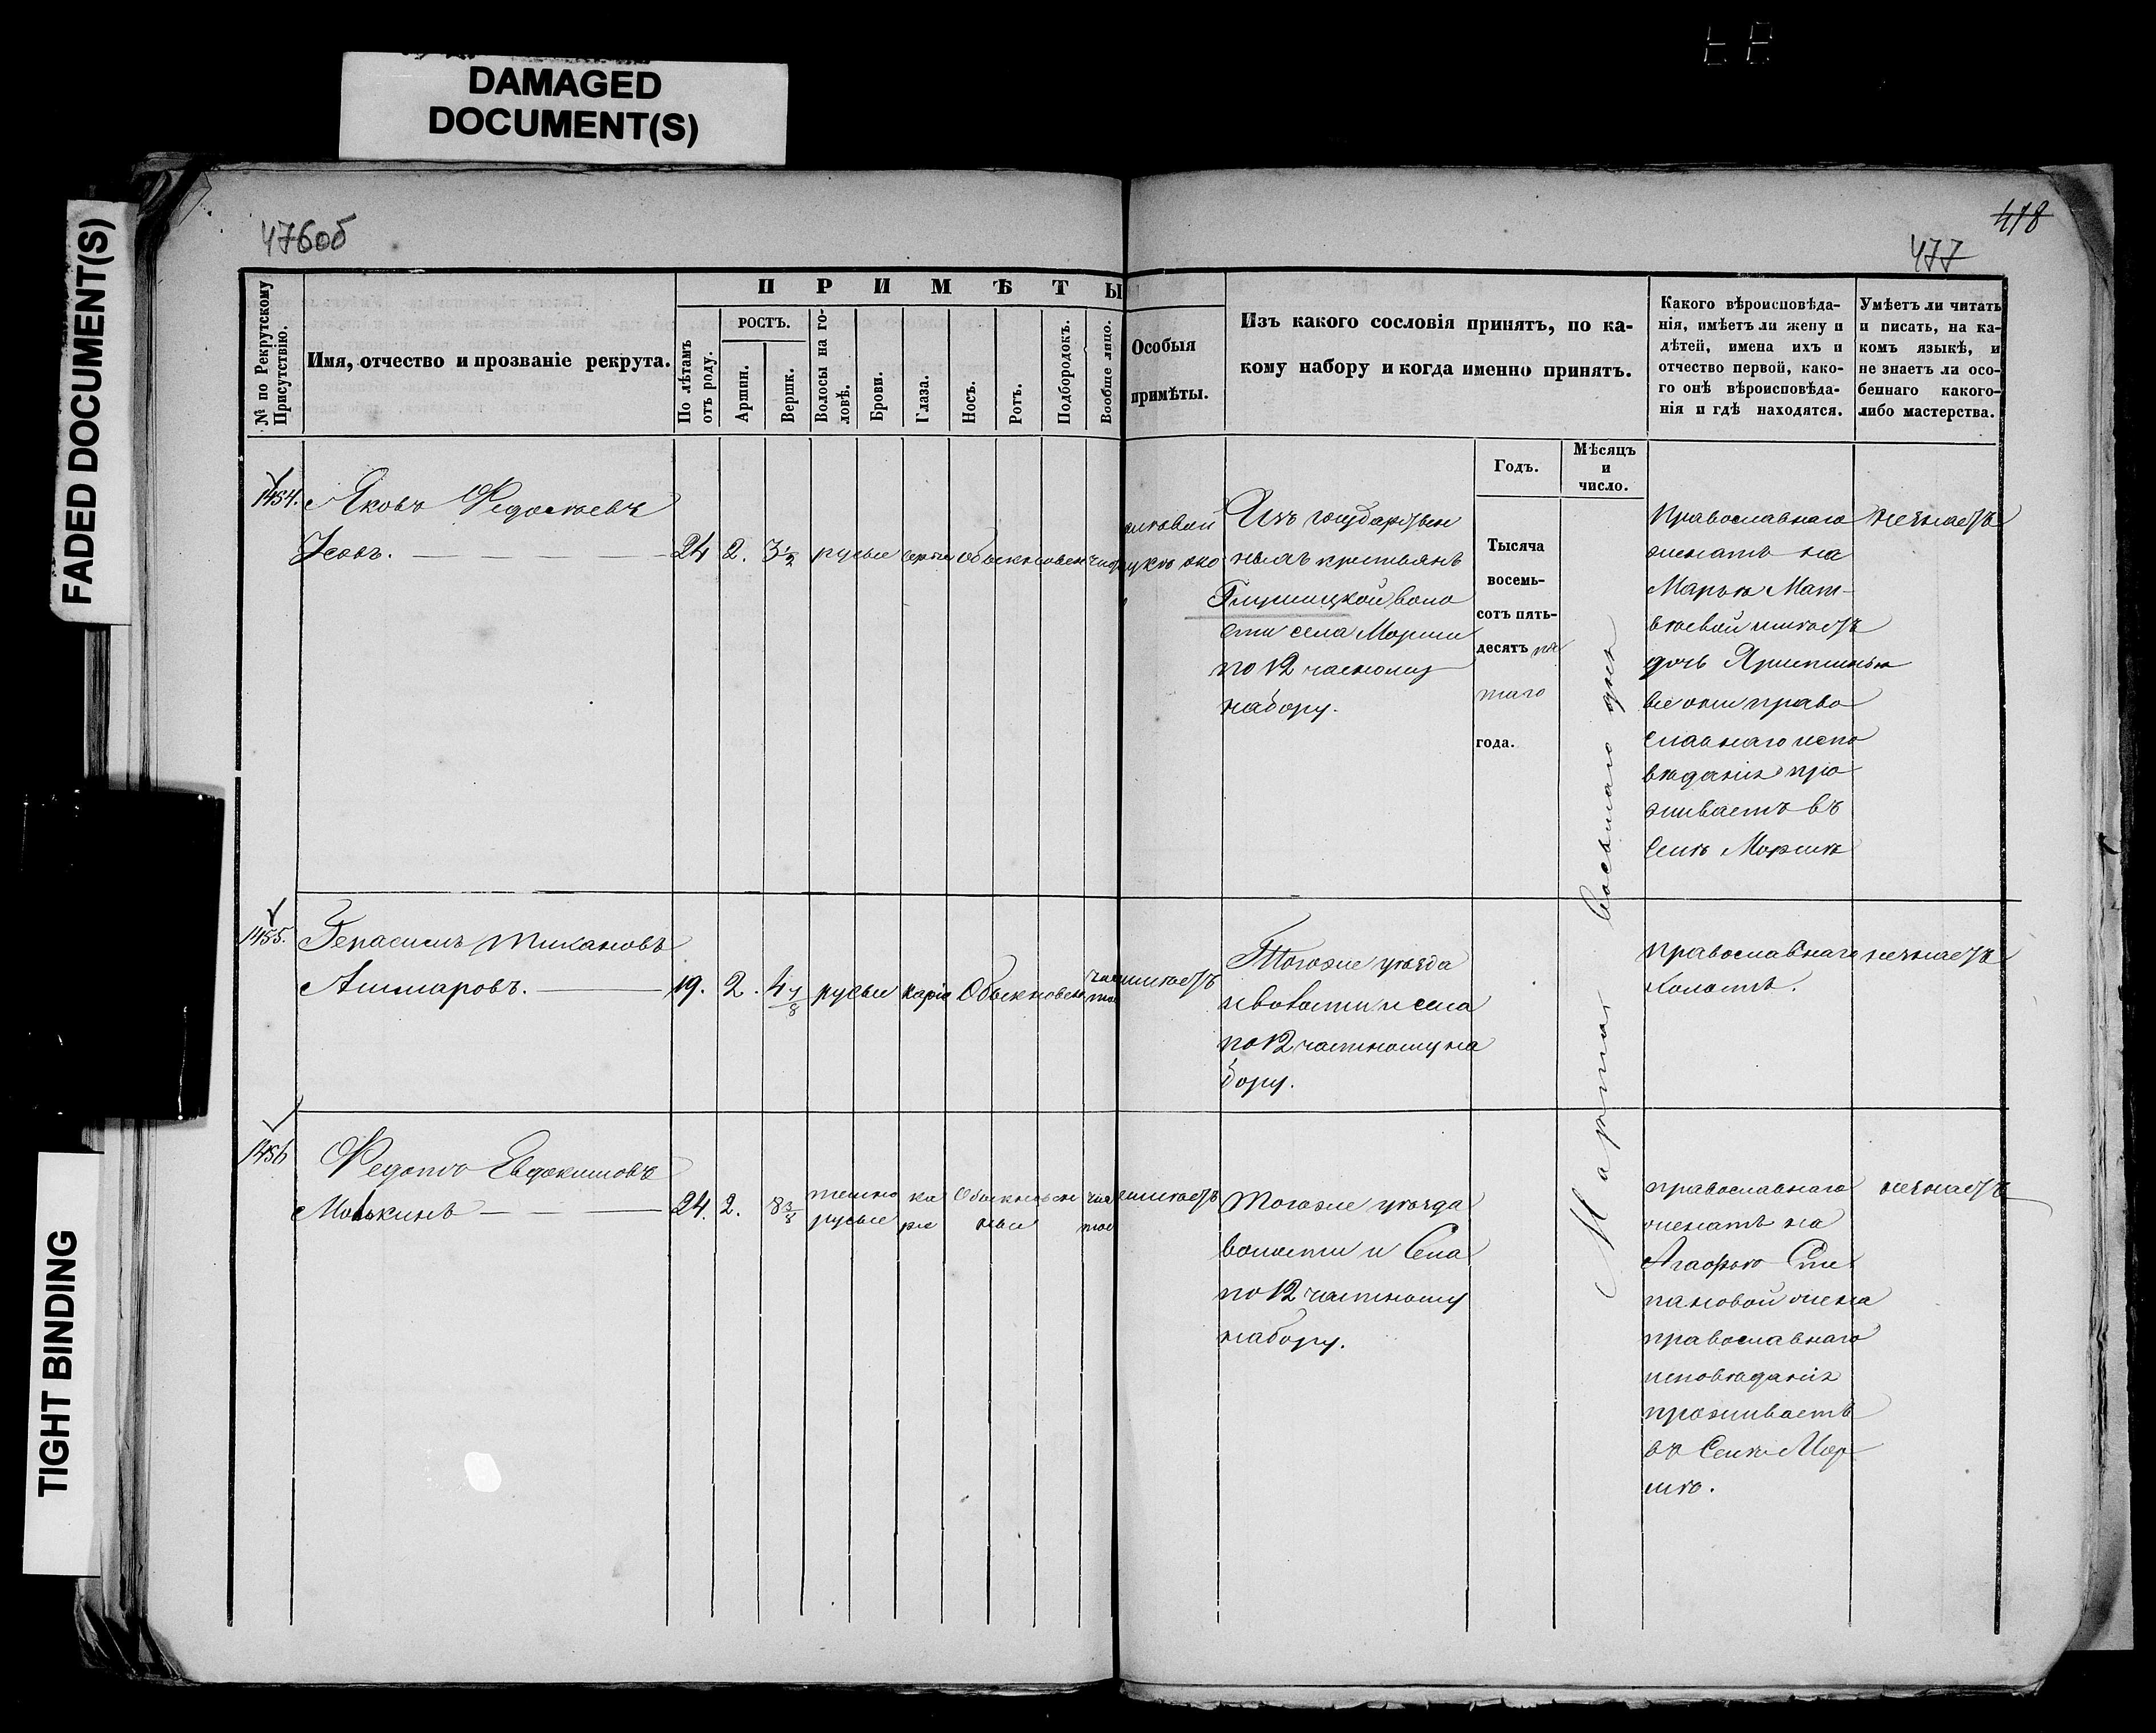 DAMAGED
DOCUMENT(S)
FADED DOCUMENT(S)
TIGHT BINDING
476об
418
477
№ по Рекрутскому
Присутствію.
Имя, отчество и прозваніе рекрута.
ПРИМѢТЫ
По лѣтамъ
отъ роду.
РОСТЪ.
Аршин.
Вершк.
Волосы на го-
ловѣ.
Брови.
Глаза.
Носъ.
Ротъ.
Подбородокъ.
Вообще лицо.
Особыя
примѣты.
Изъ какого сословія принятъ, по ка-
кому набору и когда именно принятъ.
Какого вѣроисповѣда-
нія, имѣетъ ли жену и
дѣтей, имена ихъ и
отчество первой, како-
го онѣ вѣроисповѣда-
нія и гдѣ находятся.
Умѣетъ ли читать
и писать, на ка-
комъ языкѣ, и
не знаетъ ли осо-
беннаго какого-
либо мастерства.
Годъ.
Мѣсяцъ
и
число.
1454.
Яковъ Федосѣевъ
Усовъ.
24 2. 3½ русые сѣрые Обыкновен
Изъ государствен
ныхъ крестьянъ
Глушицкой воло
сти села Морши
по 12 частному
набору.
Тысяча
восемь-
сотъ пять-
десятъ пя
таго
года.
Марта восьмаго дня
Православнаго
женатъ на
Марьѣ Мат-
вѣевой имѣетъ
дочь
всѣ они право
славнаго испо
вѣданія про
живаетъ въ
Селѣ Моршѣ
незнаетъ
1455.
Герасимъ Тихановъ
Ашмаровъ.
19. 2. 4⅞ русые каріе Обыкновен чис
тое
неимѣетъ
Тогоже уѣзда
и волости и села
по 12 частному на
бору.
православнаго
Холостъ.
незнаетъ
1456
Федотъ Евдокимовъ
24. 2. 8⅜
темно
русые
ка
ріе
Обыкновен
ные
чис
тое
неимѣетъ
Тогоже уѣзда
волости и Села
по 12 частному
набору.
православнаго
женатъ на
Агафьѣ Сте
пановой жена
православнаго
исповѣданія
проживаетъ
въ Селѣ Мор
шѣ.
незнаетъ